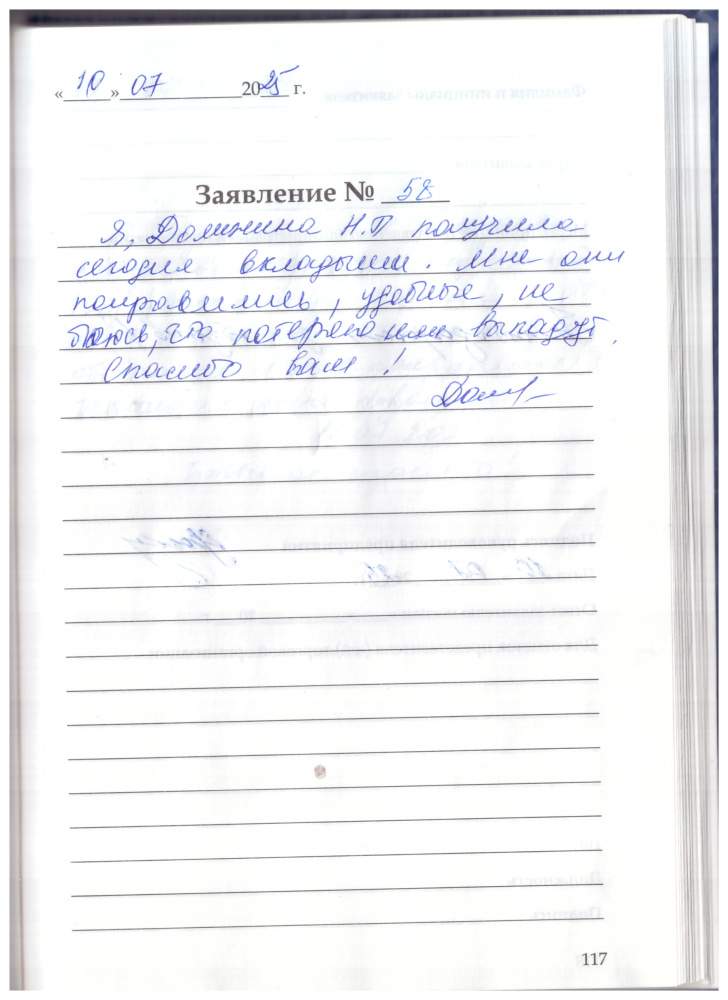 «10» 07 2025 г.
Заявление № 58
Я, Должнина Н.П получила
сегодня вкладыши. Мне они
понравились, удобные, не
боюсь, что потеряю или выпадут.
Спасибо вам!
117